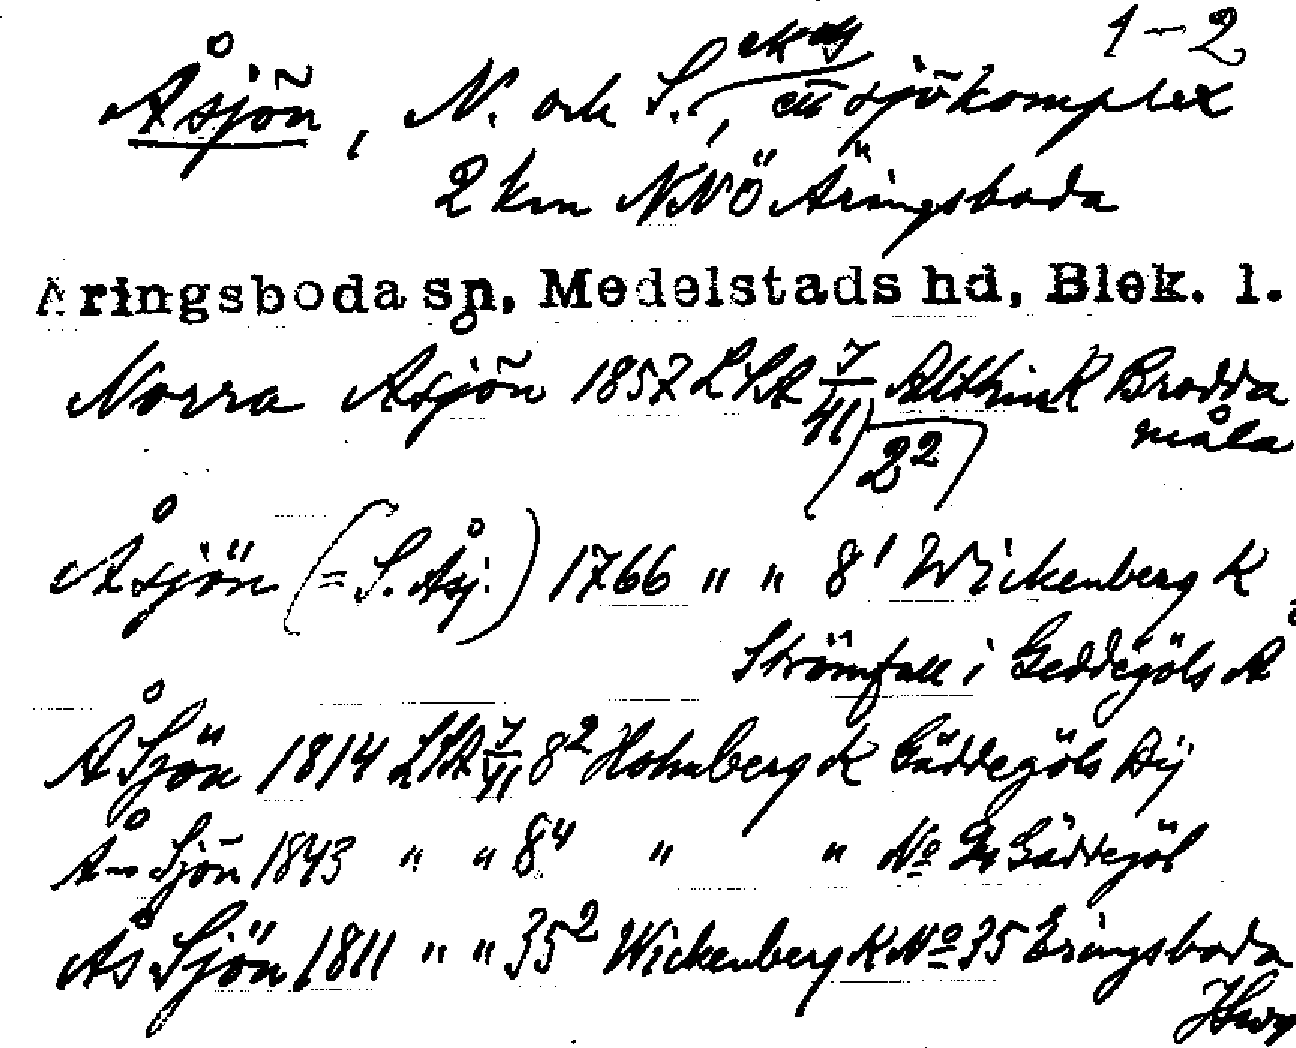 1-2
Åsjön, N. och S., ett sjökomplex
2 km NNÖ Äringsboda
Äringsboda sn, Medelstads hd, Blek. l.
Norra Åsjön 1857 LSA 7/41 Althin K Brodda
måla
22
Åsjön (= S. Åsj.) 1766 " " 8¹ Wickenberg K
Strömfall i Geddegöls Å
Å Sjön 1814 LSA 7/41 8² Holmberg K Gäddegöls Dÿ
Å- Sjön 1843 " " 8⁴ " " No Gäddegöl
Ås Sjön 1811 " " 35² Wickenberg K No 35 Eringsboda